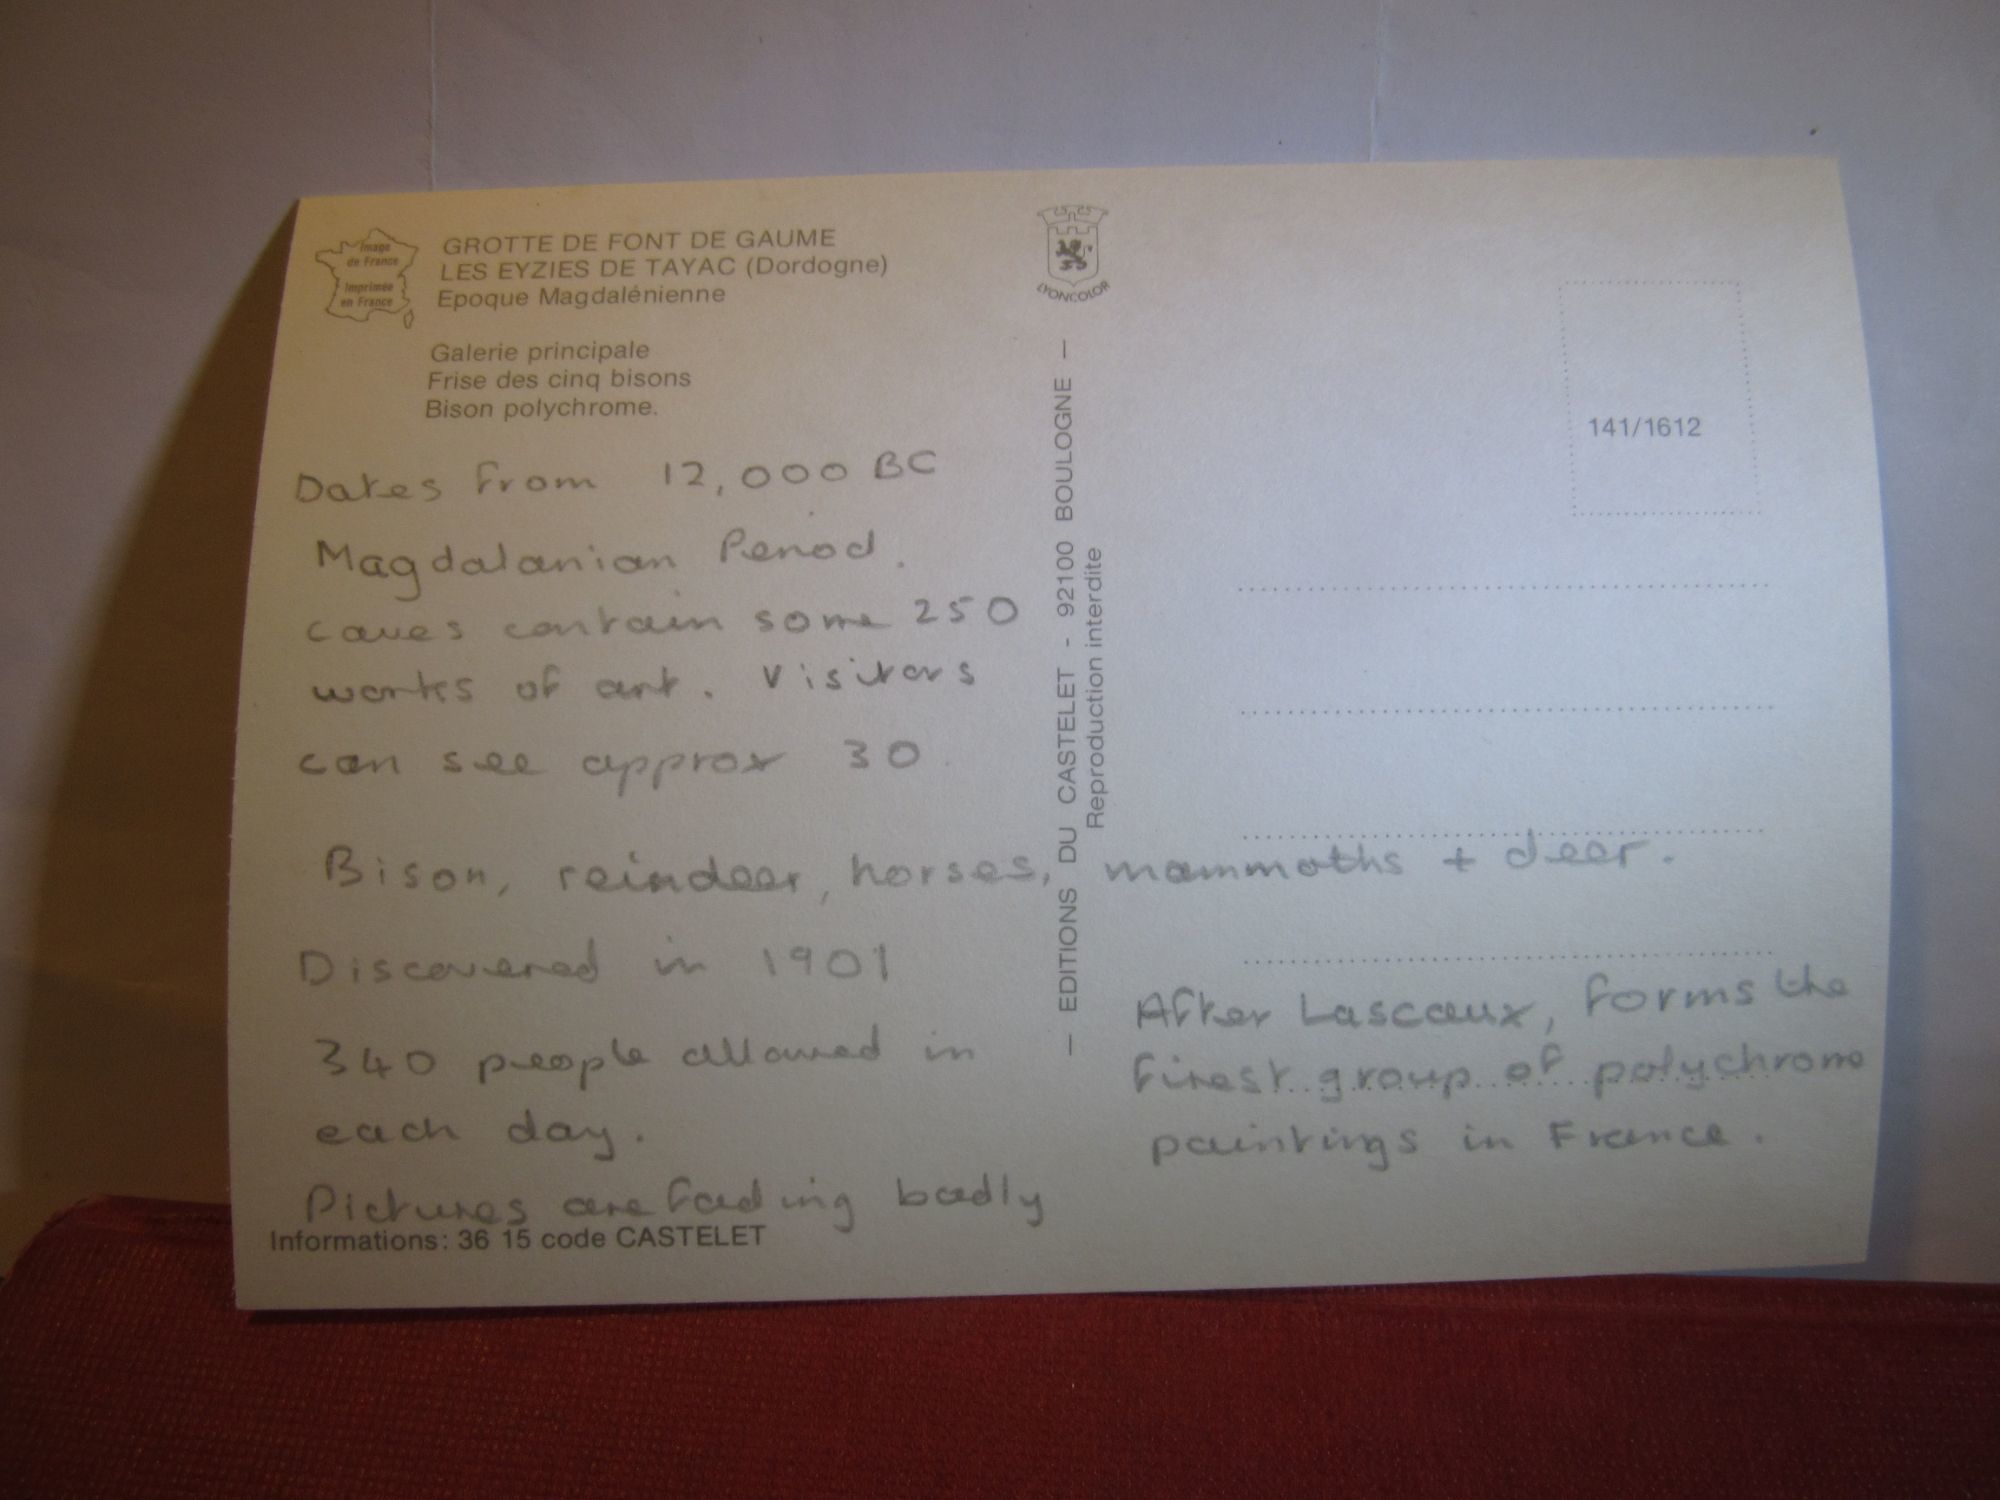 Image
de France
Imprimée
en France
GROTTE DE FONT DE GAUME
LES EYZIES DE TAYAC (Dordogne)
Epoque Magdalénienne
Galerie principale
Frise des cinq bisons
Bison polychrome.
Dates from 12,000 BC
Magdalanian Period.
caves contain some 250
works of art. Visitors
can see approx 30.
Bison, reindeer, horses, mammoths + deer.
Discovered in 1901
340 people allowed in
each day.
Pictures are fading badly
Informations: 36 15 code CASTELET
LYONCOLOR
— EDITIONS DU CASTELET - 92100 BOULOGNE —
Reproduction interdite
141/1612
After Lascaux, forms the
finest group of polychrome
paintings in France.